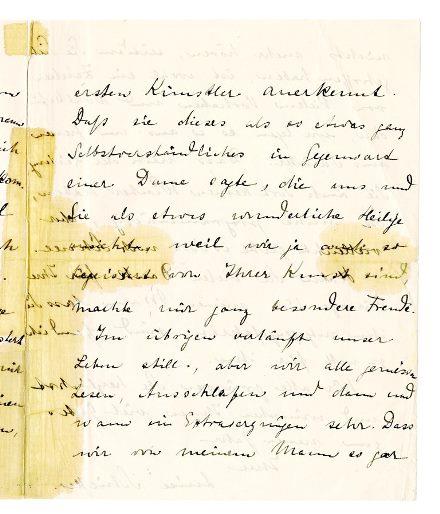 ersten Künstler anerkennt.
Daß sie dieses als so etwas ganz
Selbstverständliches in Gegenwart
einer Dame sagte, die uns und
Sie als etwas wunderliche Heilige
weil wir ja so
begeistert von Ihrer Kunst sind,
machte mir ganz besondere Freude.
Im übrigen verläuft unser
Leben still, aber wir alle genießen
Lesen, Ausschlafen und dann und
wann ein Extravergnügen sehr. Dass
wir von meinem Mann so gar